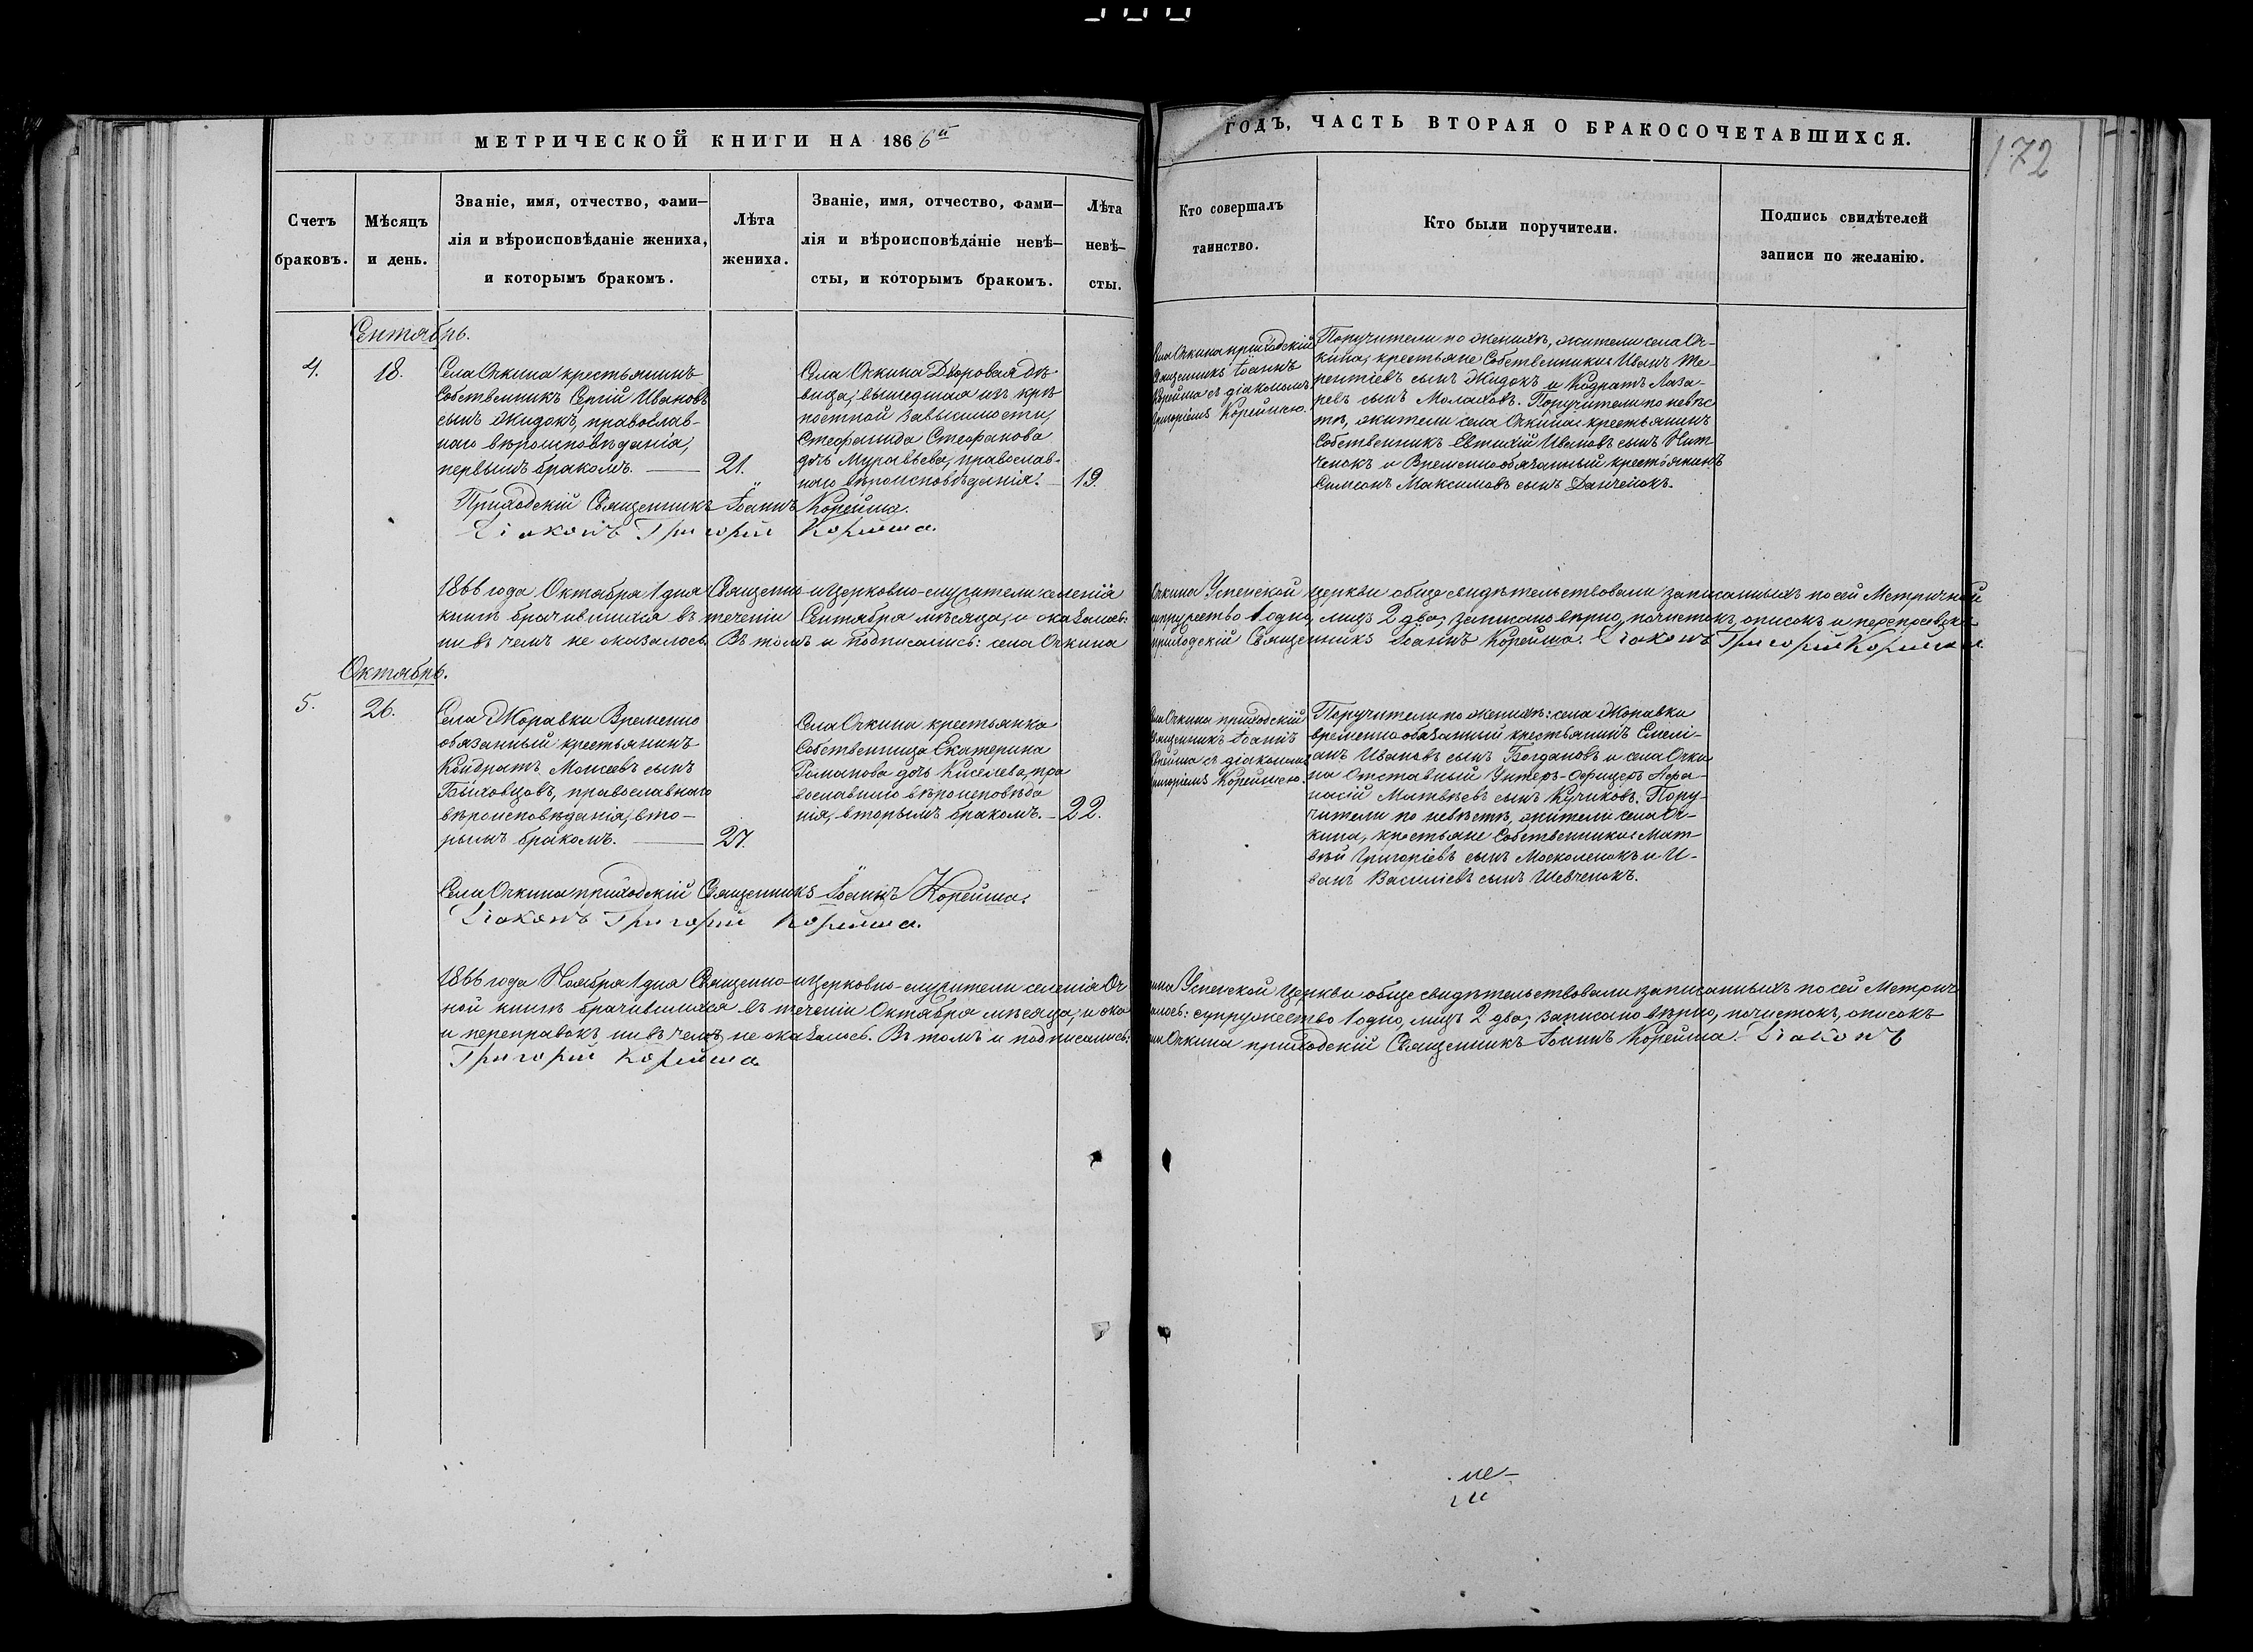 МЕТРИЧЕСКОЙ КНИГИ НА 1866й
ГОДЪ, ЧАСТЬ ВТОРАЯ О БРАКОСОЧЕТАВШИХСЯ.
172
Счетъ
браковъ.
Мѣсяцъ
и день.
Званіе, имя, отчество, фами-
лія и вѣроисповѣданіе жениха,
и которымъ бракомъ.
Лѣта
жениха.
Званіе, имя, отчество, фами-
лія и вѣроисповѣданіе невѣ-
сты, и которымъ бракомъ.
Лѣта
невѣ-
сты.
Кто совершалъ
таинство.
Кто были поручители.
Подпись свидѣтелей
записи по желанію.
Сентябрь.
4.
18.
Села Очкина крестьянинъ
Собственникъ Сергій Ивановъ
сынъ Жидокъ, православ-
наго вѣроисповѣданія,
первымъ бракомъ.
21.
Села Очкина Дворовая дѣ-
вица, вышедшая изъ крѣ
постной зависимости,
Стефанида Стефанова
дочь Муравьева, православ-
наго вѣроисповѣданія.
19.
Села Очкина приходскій
Священникъ Іоаннъ
Корейша съ діакономъ
Григоріемъ Корейшею.
Поручители по женихѣ, жители села Оч-
кина, крестьяне Собственники Иванъ Те-
рентіевъ сынъ Жидокъ и Кодратъ Лаза-
ревъ сынъ Молаховъ. Поручители по невѣс
тѣ, жители села Очкина крестьянинъ
Собственникъ Евтихій Ивановъ сынъ Нит
ченокъ и Временнообязанный крестьянинъ
Симеонъ Максимовъ сынъ Данченокъ.
Приходскій Священникъ Іоаннъ Корейша.
Діаконъ Григорій Корейша.
1866 года Октября 1 дня Священно-и Церковно-служители селенія Очкина Успенской церкви обще свидѣтельствовали записанныхъ по сей Метричной
книгѣ брачившихся въ теченіи Сентября мѣсяца, и оказалось: супружество 1 одно, лицъ 2 два; записано вѣрно, почистокъ, описокъ и переправокъ
ни въ чемъ не оказалось. Въ томъ и подписались: села Очкина приходскій Священникъ Іоаннъ Корейша. Діаконъ Григорій Корейша
Октябрь.
5.
26.
Села Журавки Временно
обязанный крестьянинъ
Кондратъ Моисеевъ сынъ
Быховцовъ, православнаго
вѣроисповѣданія, вто-
рымъ бракомъ.
27.
Села Очкина крестьянка
Собственница Екатерина
Романова дочь Киселева, пра
вославнаго вѣроисповѣда
нія, вторымъ бракомъ.
22.
Села Очкина приходскій
Священникъ Іоаннъ
Корейша съ діакономъ
Григоріемъ Корейшею.
Поручители по женихѣ: села Журавки
временнообязанный крестьянинъ Емелі-
анъ Ивановъ сынъ Богдановъ и села Очки
на Отставный Унтеръ-Офицеръ Афа-
насій Матвѣевъ сынъ Кучиковъ. Пору-
чители по невѣстѣ, жители села Оч-
кина, крестьяне Собственники Мат-
вѣй Григоріевъ сынъ Москаленокъ и И-
ванъ Василіевъ сынъ Шевченокъ.
Села Очкина приходскій Священникъ Іоаннъ Корейша.
Діаконъ Григорій Корейша.
1866 года Ноября 1 дня Священно-и Церковно-служители селенія Очкина Успенской Церкви обще свидѣтельствовали записанныхъ по сей Метрич
ной книгѣ брачившихся въ теченіи Октября мѣсяца, и оказалось: супружество 1 одно, лицъ 2 два; записано вѣрно, почистокъ, описокъ
и переправокъ ни въ чемъ не оказалось. Въ томъ и подписались: села Очкина приходскій Священникъ Іоаннъ Корейша. Діаконъ
Григорій Корейша.